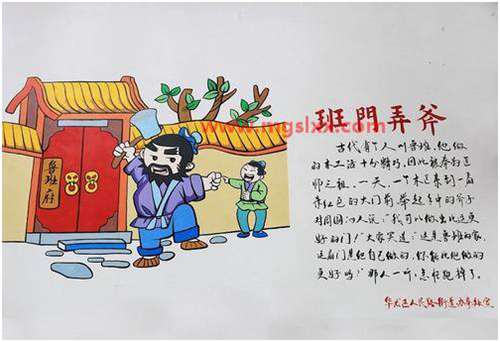 班門弄斧
www.mgslxx.com
古代有个人叫鲁班,他做
的木工活十分精巧,因此被奉为
师之祖。一天,一个木匠来到一扇
朱红色的大门前,举起手中的斧子
对周围的人说:"我可以做出比这更
好的门!"大家笑道:"这是鲁班的家,
这扇门是他自己做的,你能比他做的
更好吗?"那人一听,急忙跑掉了。
华龙区人民路街道办
鲁班府